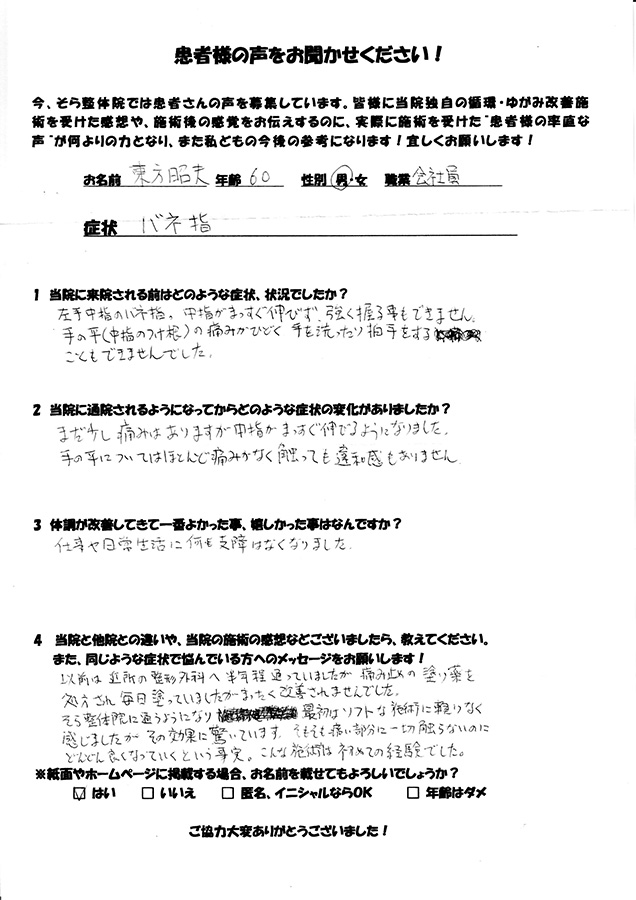 患者様の声をお聞かせください！
今、そら整体院では患者さんの声を募集しています。皆様に当院独自の循環・ゆがみ改善施
術を受けた感想や、施術後の感覚をお伝えするのに、実際に施術を受けた"患者様の率直な
声"が何よりの力となり、また私どもの今後の参考になります！宜しくお願いします！
お名前 東方昭夫 年齢 60 性別 男・女 職業 会社員
症状 バネ指
1 当院に来院される前はどのような症状、状況でしたか？
左手中指のバネ指。中指がまっすぐ伸びず、強く握る事もできません。
手の平(中指のつけ根)の痛みがひどく 手を洗ったり拍手をする
こともできませんでした。
2 当院に通院されるようになってからどのような症状の変化がありましたか？
まだ少し痛みはありますが中指がまっすぐ伸びるようになりました。
手の平についてはほとんど痛みがなく触っても違和感もありません。
3 体調が改善してきて一番よかった事、嬉しかった事はなんですか？
仕事や日常生活に何も支障はなくなりました。
4 当院と他院との違いや、当院の施術の感想などございましたら、教えてください。
また、同じような症状で悩んでいる方へのメッセージをお願いします！
以前は近所の整形外科へ半年程通っていましたが 痛み止めの塗り薬を
処方され 毎日塗っていましたがまったく改善されませんでした。
そら整体院に通うようになり 最初はソフトな施術に頼りなく
感じましたが その効果に驚いています。そもそも痛い部分に一切触らないのに
どんどん良くなっていくという事実。こんな施術は初めての経験でした。
※紙面やホームページに掲載する場合、お名前を載せてもよろしいでしょうか？
☑ はい □ いいえ □ 匿名、イニシャルならOK □ 年齢はダメ
ご協力大変ありがとうございました！